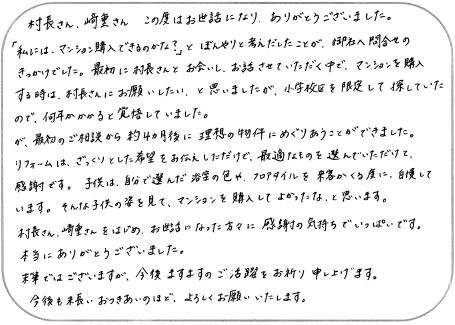 村長さん、崎重さん　この度はお世話になり、ありがとうございました。
「私には、マンション購入できるのかな？」と ぼんやりと考えだしたことが、御社へ問合せの
きっかけでした。最初に村長さんと お会いし、お話させていただく中で、マンションを購入
する時は、村長さんに お願いしたい、と思いましたが、小学校区を限定して 探していた
ので、何年かかかると覚悟していました。
が、最初のご相談から約4か月後に理想の物件にめぐりあうことができました。
リフォームは、ざっくりとした希望をお伝えしただけで、最適なものを選んでいただけて、
感謝です。子供は、自分で選んだ 浴室の色や、フロアタイルを来客がくる度に、自慢して
います。そんな子供の姿を見て、マンションを購入して よかったな、と思います。
村長さん、崎重さんをはじめ、お世話になった方々に 感謝の気持ちでいっぱいです。
本当にありがとうございました。
末筆ではございますが、今後ますますのご活躍をお祈り申し上げます。
今後も末長いおつきあいのほど、よろしくお願いいたします。